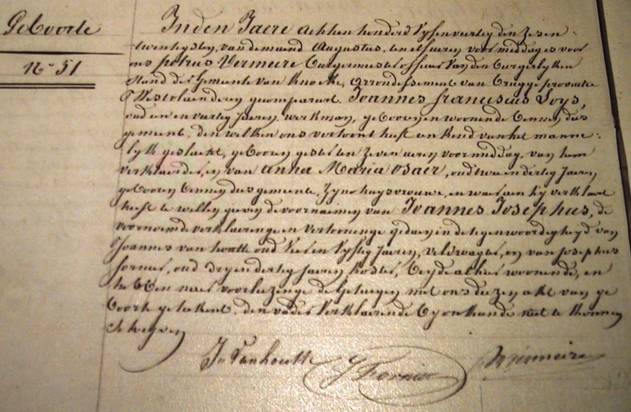 Geboorte
N° 51
In den Jaere achttien honderd vyfenveertig den zesen-
twintigsten, van de maend Augustus, ten elf uren voormiddag voor
ons petrus Vermeire Burgemeester officier van den Burgerlyken
Stand der Gemeente van Knocke, arrondissement van Brugge provintie
Westvlaenderen gecompareert Joannes franciscus Soys,
oud een en veertig jaren, werkman, geboren en woonende binnen dees
gemeente, den welken ons vertoont heeft een kind van het manne-
lyk geslacht, geboren gisteren ten zeven uren voormiddag, van hem
verklaerder, en van Anna Maria osaer, oud twee en dertig jaren
geboren binnen dees gemeente, zyne huysvrouwe, en waer aen hy verklaert
heeft te willen geven de voornaemen van Joannes Josephus, de
voornoemde verklaeringe en vertooninge gedaen in de tegenwoordigheyd van
Joannes van houtte oud vier en vyftig jaren, veldwagter, en van josephus
fornier, oud dryendertig jaren, koster, beyde alhier woonende, en
hebben naer voorlezinge de getuygen met ons dezen akt van ge-
boorte geteekent, den vader verklaerende by onkunde niet te konnen
schryven
J. Vanhoutte J Fornier P Vermeire